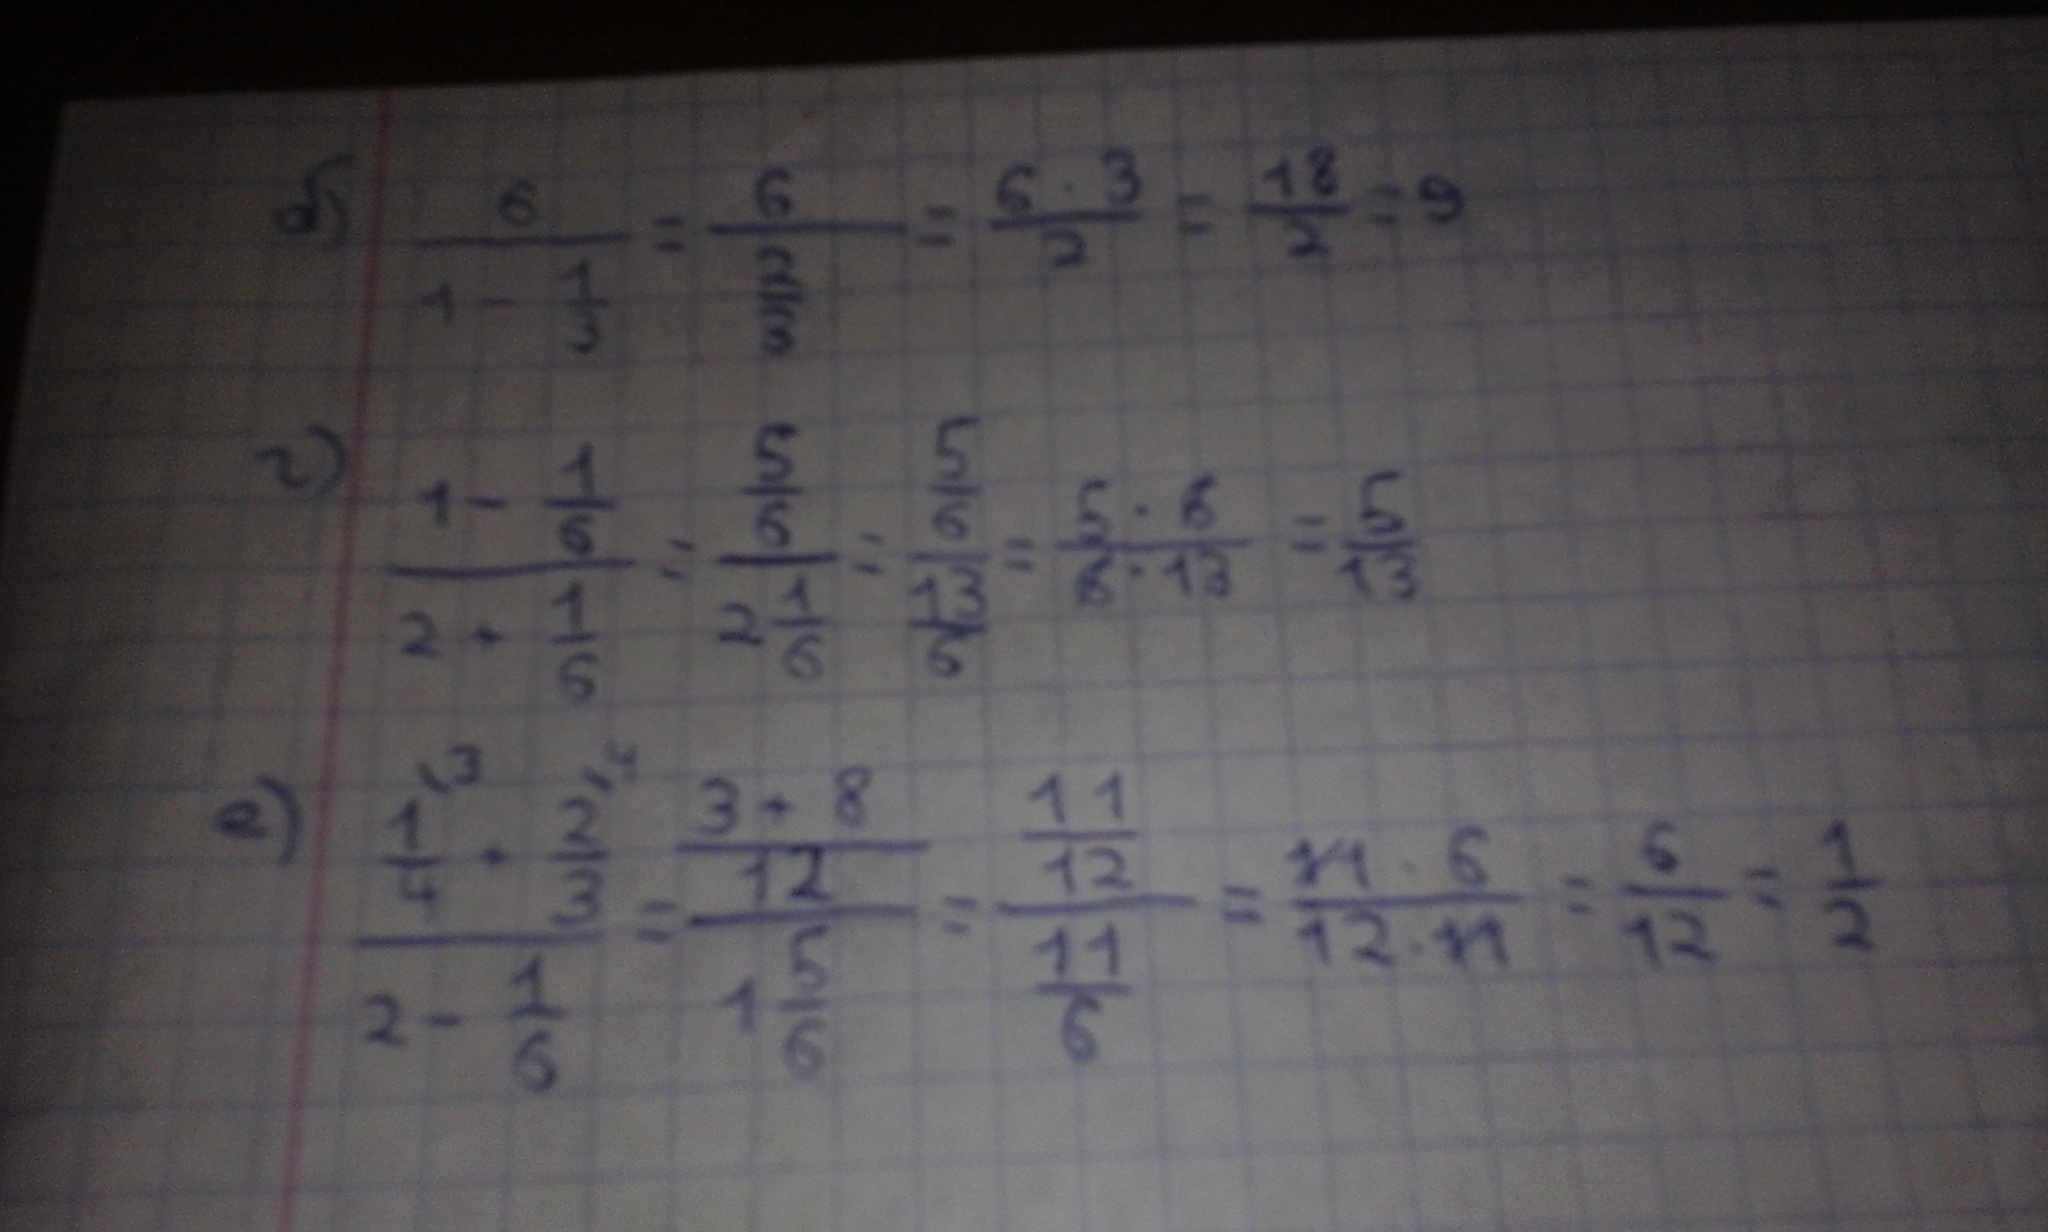 а) 6/(1 - 1/3) = 6/(2/3) = (6 · 3)/2 = 18/2 = 9
г) (1 - 1/6)/(2 + 1/6) = (5/6)/(2 1/6) = (5/6)/(13/6) = (5 · 6)/(6 · 13) = 5/13
е) (1/4 \3 + 2/3 \4)/(2 - 1/6) = ((3 + 8)/12)/(1 5/6) = (11/12)/(11/6) = (11 · 6)/(12 · 11) = 6/12 = 1/2